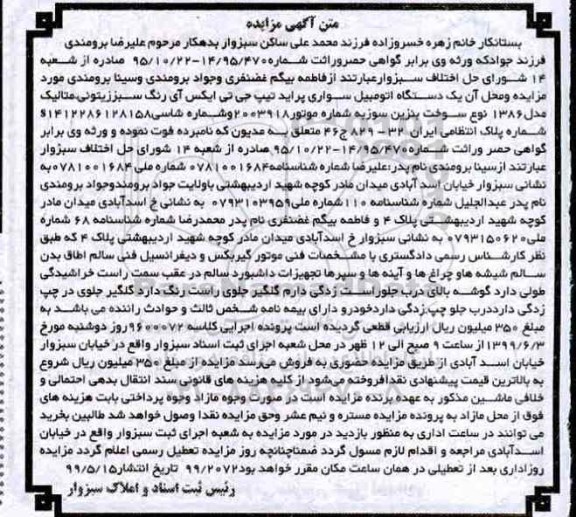 متن آگهی مزایده
بستانکار خانم زهره خسروزاده فرزند محمد علی ساکن سبزوار بدهکار مرحوم علیرضا برومندی
فرزند جوادکه ورثه وی برابر گواهی حصروراثت شماره۱۴/۹۵/۴۷۰-۹۵/۱۰/۲۲ صادره از شعبه
۱۴ شورای حل اختلاف سبزوارعبارتند ازفاطمه بیگم غضنفری وجواد برومندی وسینا برومندی مورد
مزایده ومحل آن یک دستگاه اتومبیل سواری پراید تیپ جی تی ایکس آی رنگ سبززیتونی-متالیک
مدل۱۳۸۶ نوع سوخت بنزین سوزبه شماره موتور۲۰۰۳۹۱۸وشماره شاسی۱۴۱۲۲۸۶۱۲۸۱۵۸s
شماره پلاک انتظامی ایران ۳۲- ۸۲۹ ج۴۶ متعلق به مدیون که نامبرده فوت نموده و ورثه وی برابر
گواهی حصر وراثت شماره۱۴/۹۵/۴۷۰-۹۵/۱۰/۲۲صادره از شعبه ۱۴ شورای حل اختلاف سبزوار
عبارتند ازسینا برومندی نام پدر:علیرضا شماره شناسنامه۰۷۸۱۰۰۱۶۸۴ شماره ملی ۰۷۸۱۰۰۱۶۸۴به
نشانی سبزوار خیابان اسد آبادی میدان مادر کوچه شهید اردیبهشتی باولایت جواد برومندوجواد برومندی
نام پدر عبدالجلیل شماره شناسنامه ۱۱۰شماره ملی۰۷۹۳۱۰۳۹۵۹ به نشانی خ اسدآبادی میدان مادر
کوچه شهید اردیبهشتی پلاک ۴ و فاطمه بیگم غضنفری نام پدر محمدرضا شماره شناسنامه ۶۸ شماره
ملی۰۷۹۳۱۵۰۶۲۰ به نشانی سبزوار خ اسدآبادی میدان مادر کوچه شهید اردیبهشتی پلاک ۴ که طبق
نظر کارشناس رسمی دادگستری با مشخصات فنی موتور گیربکس و دیفرانسیل فنی سالم اطاق بدن
سالم شیشه هاو چراغ ها و آینه ها و سپرها تجهیزات داشبورد سالم در عقب سمت راست خراشیدگی
طولی دارد گوشه بالای درب جلوراست زدگی دارم گلگیر جلوی راست رنگ دارد گلگیر جلوی در چپ
زدگی دارددرب جلو چپ.زدگی داردخودرو دارای بیمه نامه شخص ثالث و حوادث راننده می باشد به
مبلغ ۳۵۰ میلیون ریال ارزیابی قطعی گردیده است پرونده اجرایی کلاسه ۹۶۰۰۰۷۲ روز دوشنبه مورخ
۱۳۹۹/۶/۳ از ساعت ۹ صبح الی ۱۲ ظهر در محل شعبه اجرای ثبت اسناد سبزوار واقع در خیابان سبزوار
خیابان اسد آبادی از طریق مزایده حضوری به فروش می‌رسد مزایده از مبلغ ۳۵۰ میلیون ریال شروع
به بالاترین قیمت پیشنهادی نقدافروخته می‌شود از کلیه هزینه های قانونی سند انتقال بدهی احتمالی و
خلافی ماشین مذکور به عهده برنده مزایده است در صورت وجوه مازاد وجوه پرداختی بابت هزینه های
فوق از محل مازاد به پرونده مزایده مسترد و نیم عشر وحق مزایده نقدا وصول خواهد شد طالبین بخرید
می توانند در ساعت اداری به منظور بازدید در مورد مزایده به شعبه اجرای ثبت سبزوار واقع در خیابان
اسدآبادی مراجعه و اقدام لازم مسول گردد ضمناچنانچه روز مزایده تعطیل رسمی اعلام گردد مزایده
روزاداری بعد از تعطیلی در همان ساعت مکان مقرر خواهد بود۹۹/۲۰۷۲ تاریخ انتشار۹۹/۵/۱۵
رئیس ثبت اسناد و املاک سبزوار